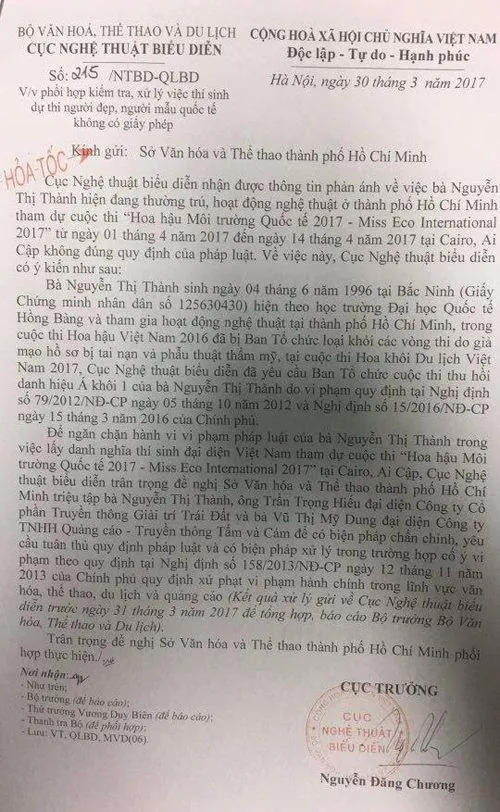 BỘ VĂN HOÁ, THỂ THAO VÀ DU LỊCH
CỤC NGHỆ THUẬT BIỂU DIỄN
CỘNG HOÀ XÃ HỘI CHỦ NGHĨA VIỆT NAM
Độc lập - Tự do - Hạnh phúc
Số: 215 /NTBD-QLBD
V/v phối hợp kiểm tra, xử lý việc thí sinh
dự thi người đẹp, người mẫu quốc tế
không có giấy phép
Hà Nội, ngày 30 tháng 3 năm 2017
HỎA TỐC
Kính gửi: Sở Văn hóa và Thể thao thành phố Hồ Chí Minh
Cục Nghệ thuật biểu diễn nhận được thông tin phản ánh về việc bà Nguyễn
Thị Thành hiện đang thường trú, hoạt động nghệ thuật ở thành phố Hồ Chí Minh
tham dự cuộc thi “Hoa hậu Môi trường Quốc tế 2017 - Miss Eco International
2017” từ ngày 01 tháng 4 năm 2017 đến ngày 14 tháng 4 năm 2017 tại Cairo, Ai
Cập không đúng quy định của pháp luật. Về việc này, Cục Nghệ thuật biểu diễn
có ý kiến như sau:
Bà Nguyễn Thị Thành sinh ngày 04 tháng 6 năm 1996 tại Bắc Ninh (Giấy
Chứng minh nhân dân số 125630430) hiện theo học trường Đại học Quốc tế
Hồng Bàng và tham gia hoạt động nghệ thuật tại thành phố Hồ Chí Minh, trong
cuộc thi Hoa hậu Việt Nam 2016 đã bị Ban Tổ chức loại khỏi các vòng thi do giả
mạo hồ sơ bị tai nạn và phẫu thuật thẩm mỹ, tại cuộc thi Hoa khôi Du lịch Việt
Nam 2017, Cục Nghệ thuật biểu diễn đã yêu cầu Ban Tổ chức cuộc thi thu hồi
danh hiệu Á khôi 1 của bà Nguyễn Thị Thành do vi phạm quy định tại Nghị định
số 79/2012/NĐ-CP ngày 05 tháng 10 năm 2012 và Nghị định số 15/2016/NĐ-CP
ngày 15 tháng 3 năm 2016 của Chính phủ.
Để ngăn chặn hành vi vi phạm pháp luật của bà Nguyễn Thị Thành trong
việc lấy danh nghĩa thí sinh đại diện Việt Nam tham dự cuộc thi “Hoa hậu Môi
trường Quốc tế 2017 - Miss Eco International 2017” tại Cairo, Ai Cập, Cục Nghệ
thuật biểu diễn trân trọng đề nghị Sở Văn hóa và Thể thao thành phố Hồ Chí
Minh triệu tập bà Nguyễn Thị Thành, ông Trần Trọng Hiếu đại diện Công ty Cổ
phần Truyền thông Giải trí Trái Đất và bà Vũ Thị Mỹ Dung đại diện Công ty
TNHH Quảng cáo - Truyền thông Tấm và Cám để có biện pháp chấn chỉnh, yêu
cầu tuân thủ quy định pháp luật và có biện pháp xử lý trong trường hợp cố ý vi
phạm theo quy định tại Nghị định số 158/2013/NĐ-CP ngày 12 tháng 11 năm
2013 của Chính phủ quy định xử phạt vi phạm hành chính trong lĩnh vực văn
hóa, thể thao, du lịch và quảng cáo (Kết quả xử lý gửi về Cục Nghệ thuật biểu
diễn trước ngày 31 tháng 3 năm 2017 để tổng hợp, báo cáo Bộ trưởng Bộ Văn
hóa, Thể thao và Du lịch).
Trân trọng đề nghị Sở Văn hóa và Thể thao thành phố Hồ Chí Minh phối
hợp thực hiện./.
Nơi nhận:
- Như trên;
- Bộ trưởng (để báo cáo);
- Thứ trưởng Vương Duy Biên (để báo cáo);
- Thanh tra Bộ (để phối hợp);
- Lưu: VT, QLBD, MVD(06).
CỤC TRƯỞNG
CỤC
NGHỆ THUẬT
BIỂU DIỄN
Nguyễn Đăng Chương